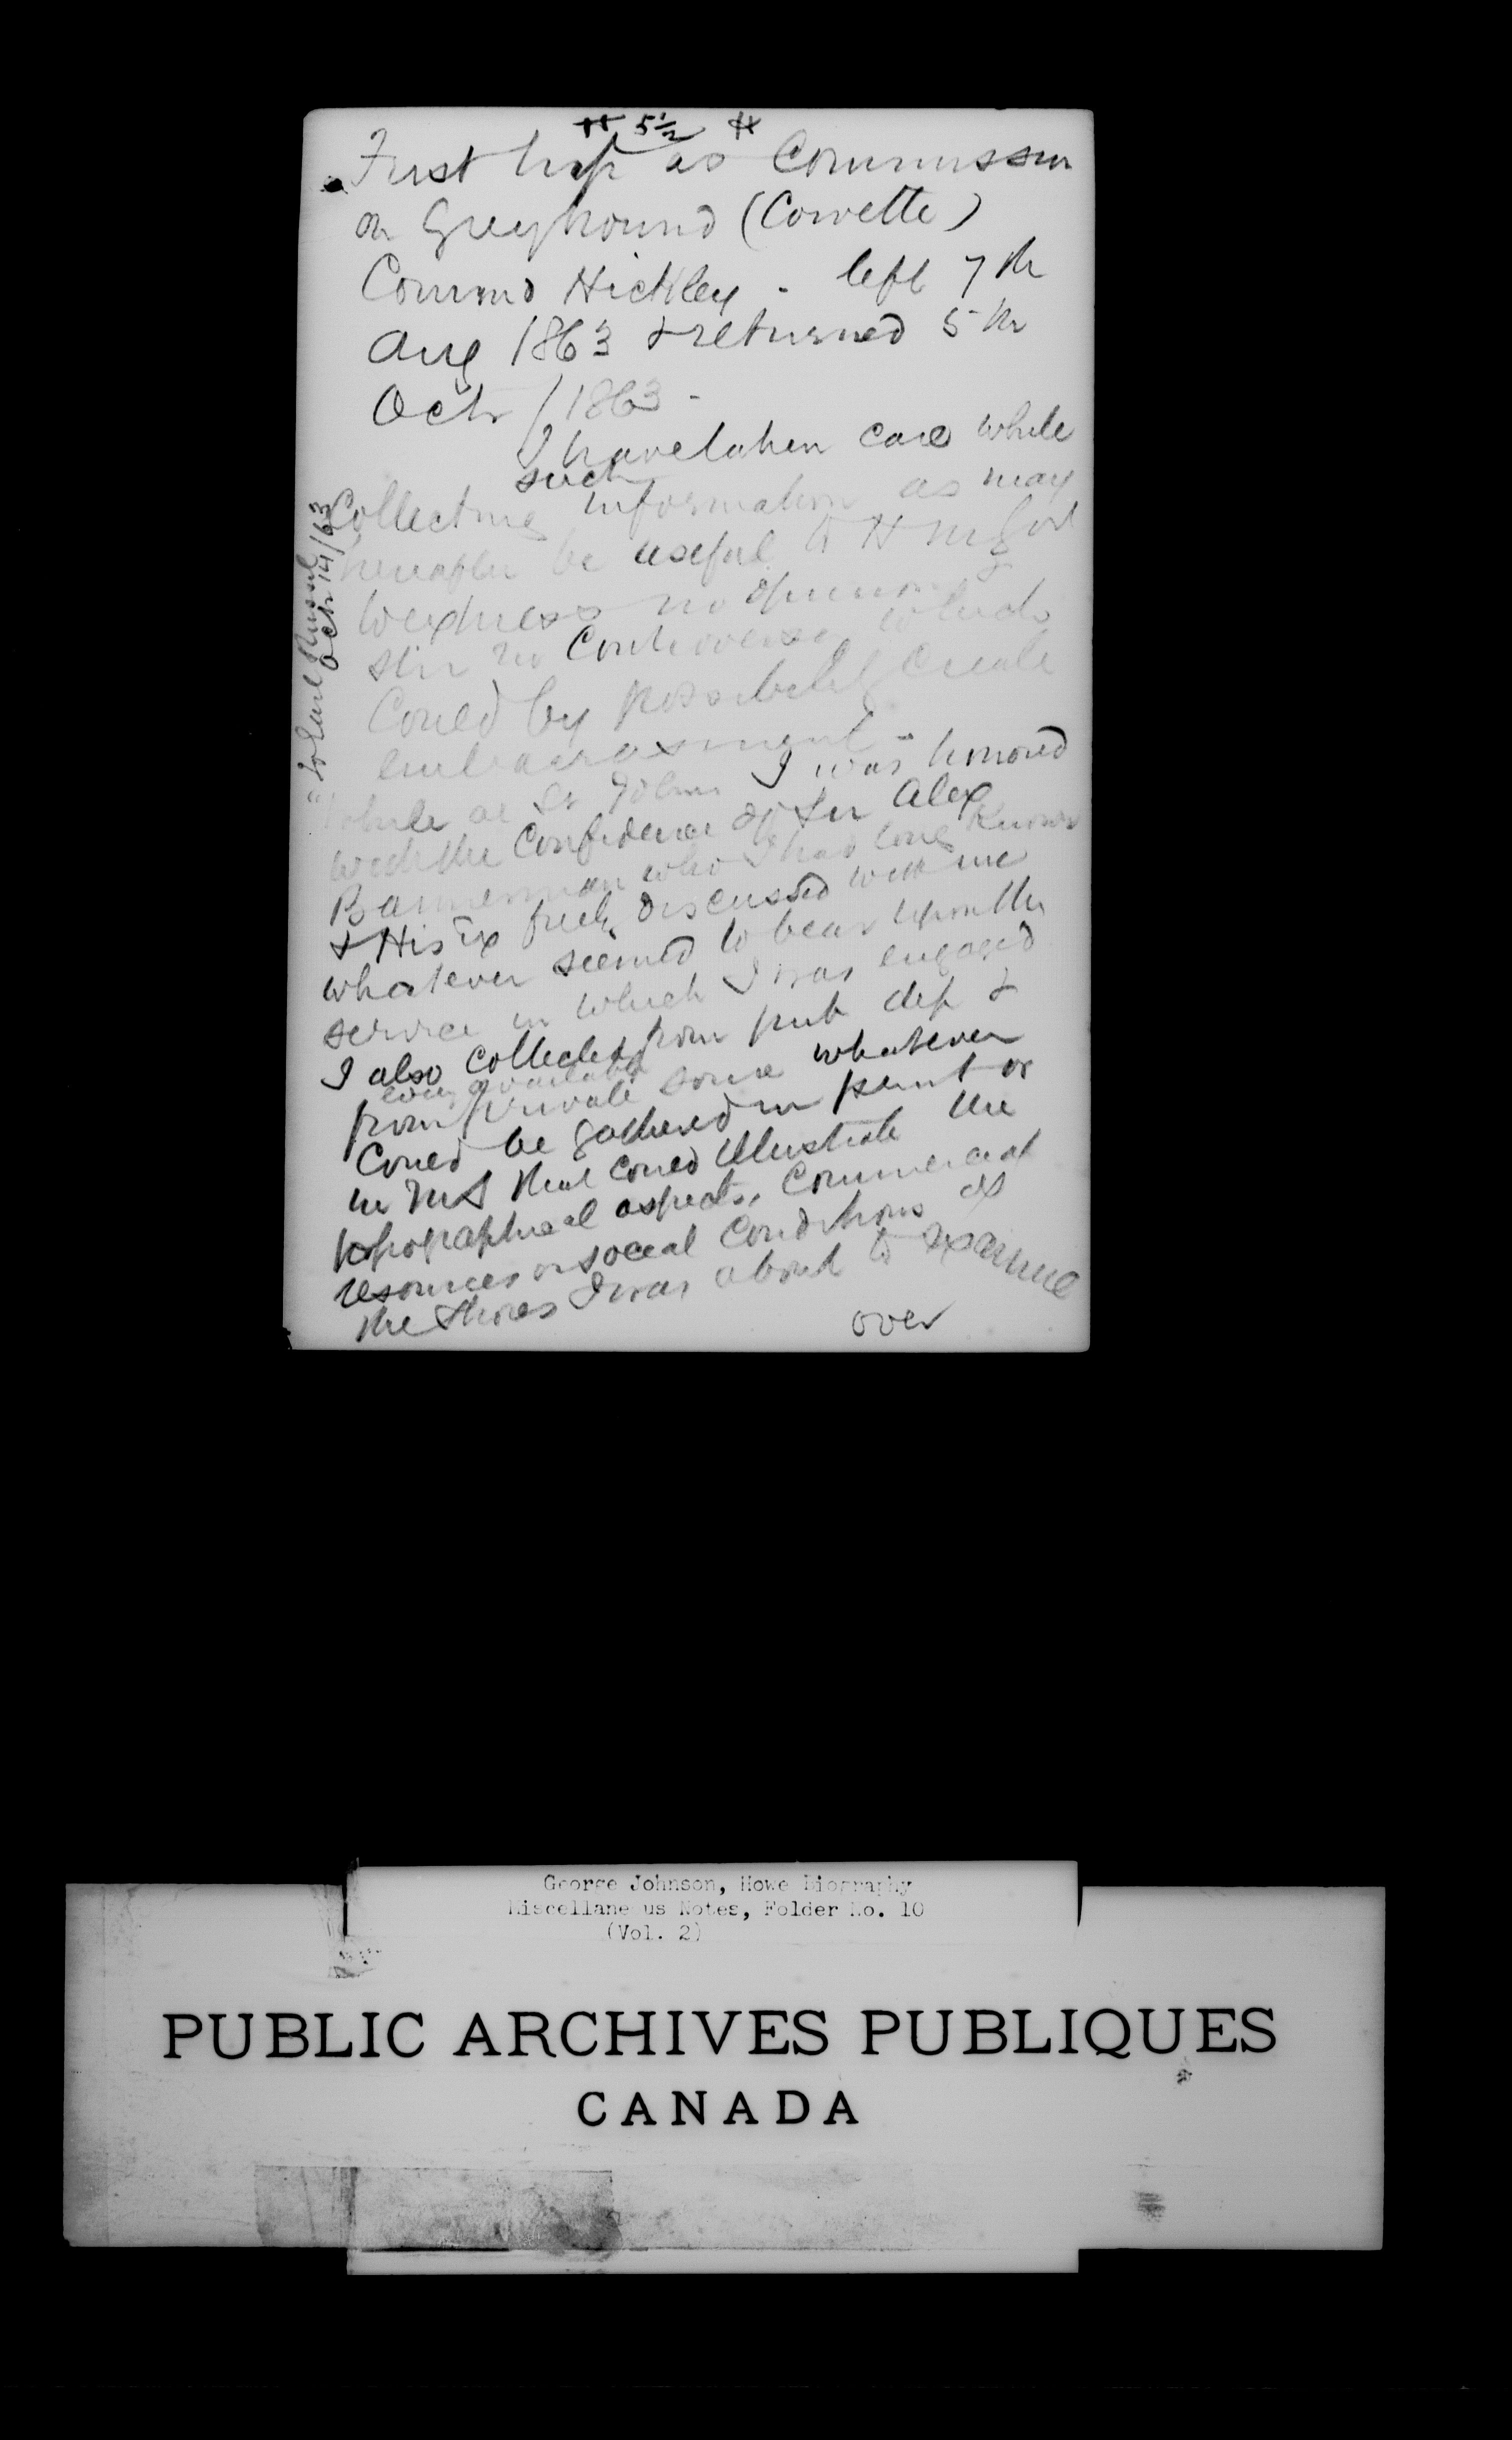 # 5½ #
First trip as Commissr
on Greyhound (Corvette)
Command Hickley - left 7th
Aug 1863 & returned 5th
Octr / 1863 -
I have taken care while
such
Collecting information as may
hereafter be useful to H M Govt
to express no opinion
stir no Controversy which
Could by possibility Create
embarrassment -
While at St Johns I was honored
with the Confidence of Sir Alex
Bannerman who I had long known
& His Ex freely discussed with me
whatever seemed to bear upon the
service in which I was engaged
I also Collected from pub dep &
every available
from private source whatever
Could be gathered in print or
in MS that could illustrate the
topographical aspects, Commercial
resources or social Conditions of
the shores I was about to examine
over
"to Earl Russell
Octr 14/63
George Johnson, Howe Biography
Miscellane us Notes, Folder No. 10
(Vol. 2)
PUBLIC ARCHIVES PUBLIQUES
CANADA